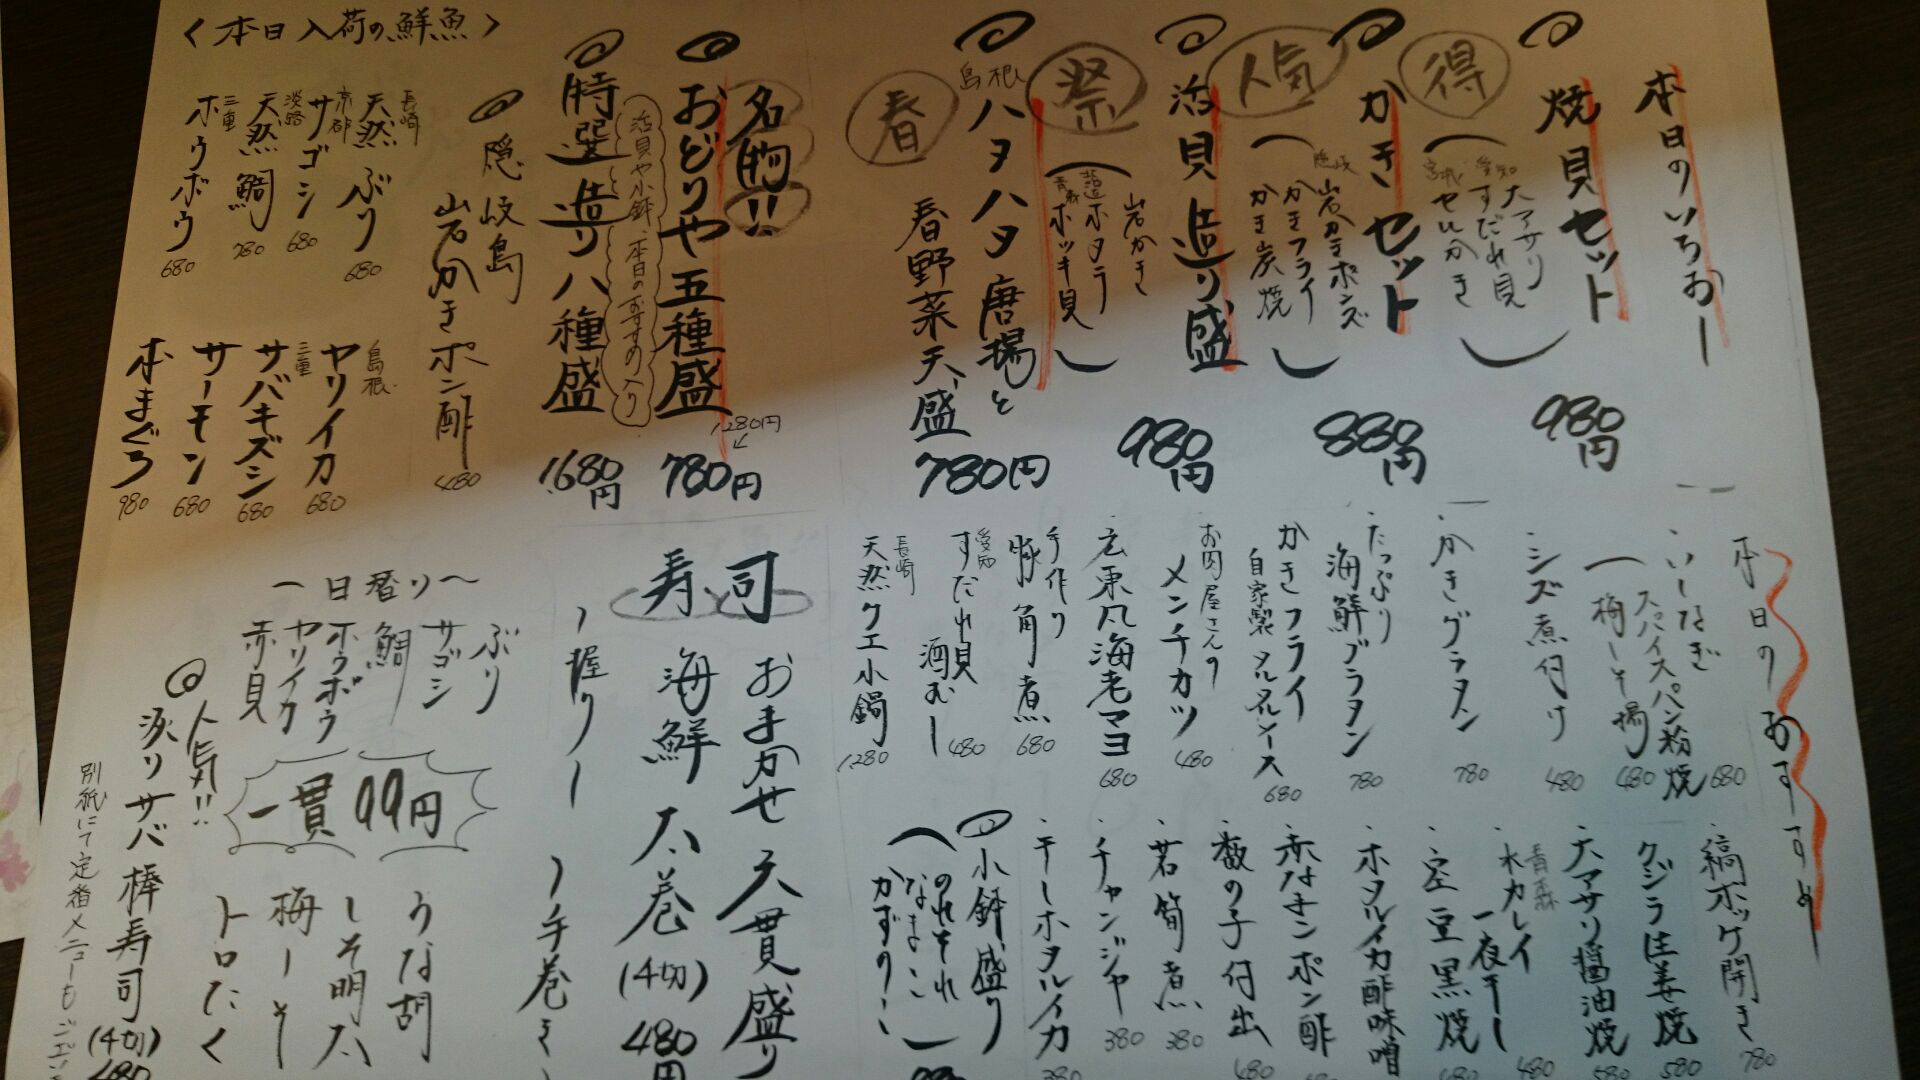 本日のいちおー
焼貝セット
得
愛知 大アサリ
すだれ貝
宮城 せいがき
980円
かきセット
人気
隠岐 岩かきポンズ
かきフライ
かき炭焼
880円
活貝造り盛
祭
岩かき
ホタテ
青森 ホッキ貝
980円
島根 ハタハタ唐揚と
春
春野菜天盛
780円
名物!!
おどりや五種盛
1280円
780円
活貝や小鉢、本日のおすすめ入り
特選造り八種盛
1680円
隠岐島
岩がきポン酢
480
〈本日入荷の鮮魚〉
長崎 天然ぶり 680
京都 サゴシ 680
淡路 天然鯛 780
三重 ホウボウ 680
島根 ヤリイカ 680
三重 サバキズシ 680
サーモン 680
本まぐろ 980
本日のおすすめ
・いーなぎ
スパイスパン粉焼 680
梅しそ揚 480
・シズ煮付け 480
・かきグラタン 780
・たっぷり
海鮮グラタン 780
かきフライ
自家製タルタルソース 680
お肉屋さんの
メンチカツ 480
・広東風海老マヨ 680
手作り
豚角煮 680
愛知 すだれ貝
酒むし 480
長崎 天然クエ小鍋 1280
・縞ホッケ開き 780
クジラ生姜焼 580
大アサリ醤油焼 580
青森 水カレイ
一夜干し 480
・空豆黒焼 480
・ホタルイカ酢味噌
・赤なまこポン酢
・数の子付出 480
・若筍煮 380
・チャンジャ 380
・干しホタルイカ 380
小鉢盛り
のれそれ
なまこ
かずのこ
寿司
おまかせ八貫盛り
海鮮太巻(4切) 480円
〜握り〜
〜日替り〜
ぶり
サゴシ
鯛
ホウボウ
ヤリイカ
赤貝
一貫99円
〜手巻き〜
うな胡
しそ明太
梅しそ
トロたく
人気!!
炙りサバ棒寿司(4切) 480
別紙にて定番メニューもござい